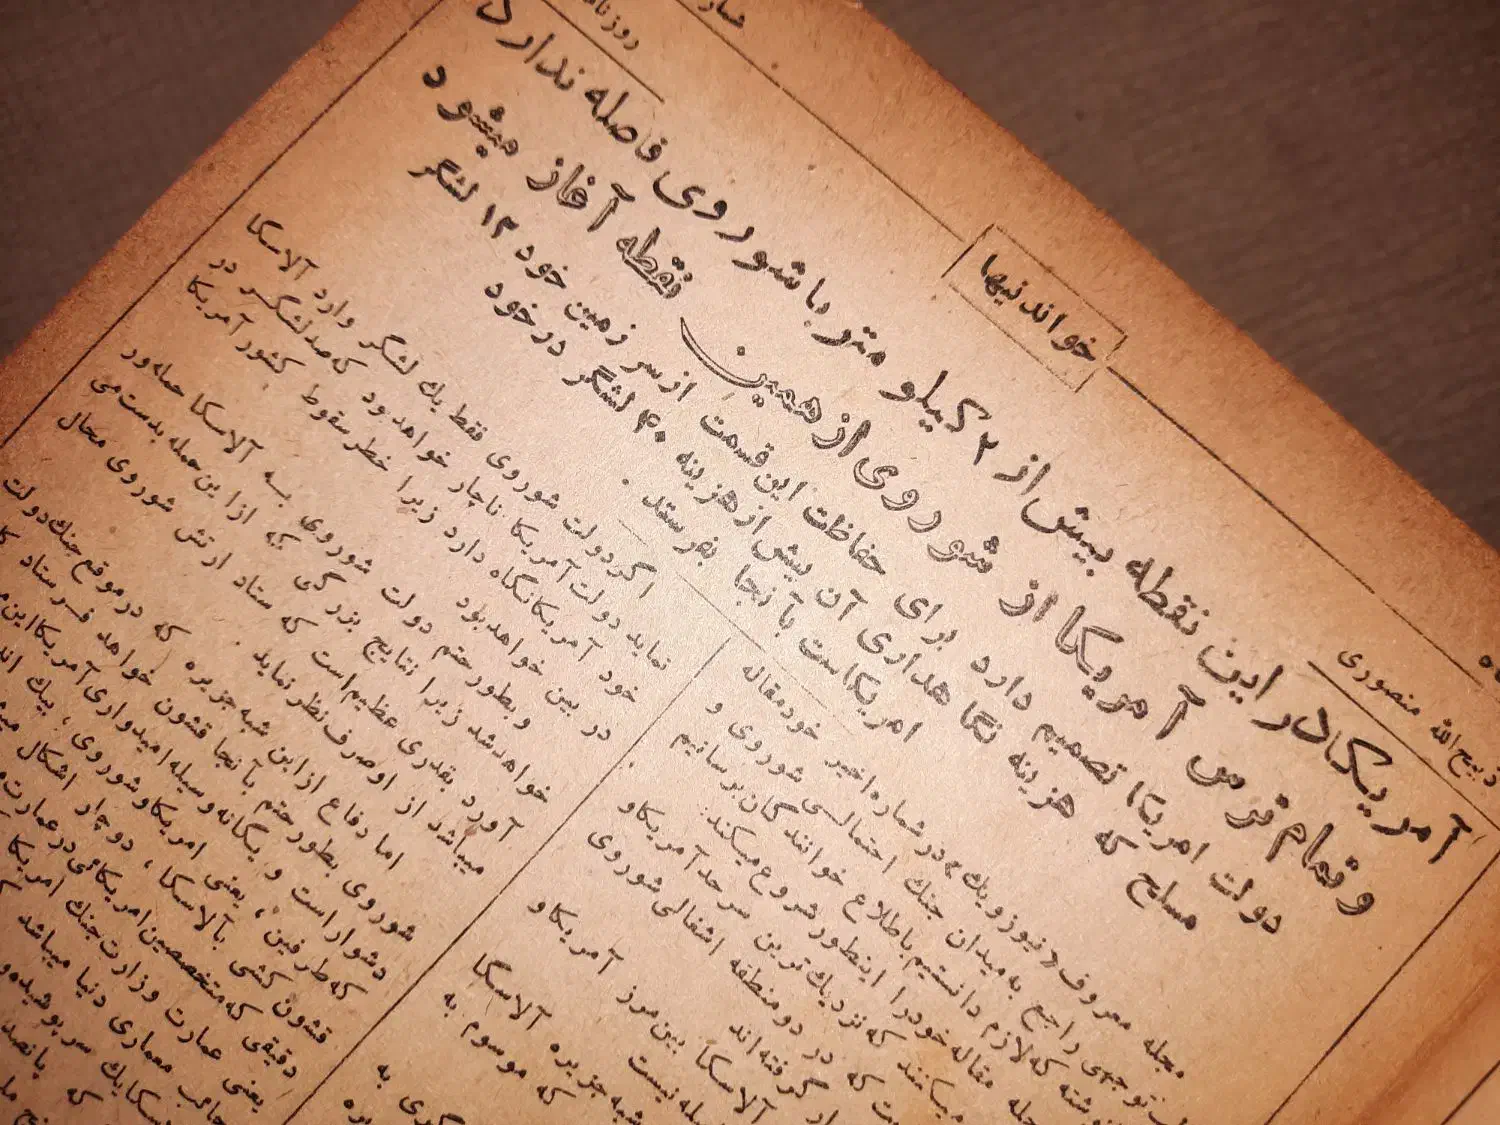 خواندنیها
ذبیح‌الله منصوری
آمریکا در این نقطه بیش از ۲ کیلو متر با شوروی فاصله ندارد
و تمام ترس آمریکا از شوروی از همین نقطه آغاز میشود
دولت امریکا تصمیم دارد برای حفاظت این قسمت از سر زمین خود ۱۲ لشگر
مسلح که هزینه نگاهداری آن بیش از هزینه ۴۰ لشگر در خود
امریکا است بآنجا بفرستد .
مجله معروف «نیوزویک» در شماره اخیر خود مقاله
توجهی راجع به میدان جنك احتمالی شوروی و
نوشته که لازم دانستیم باطلاع خوانندگان برسانیم
مقاله خود را اینطور شروع میکند:
میدانند که نزدیك ترین سرحد آمریکا و
که در دو منطقه اشغالی شوروی
گرفته‌اند
آلاسکا بین مرز آمریکا و
نیست
شبه جزیره آلاسکا
که موسوم به
اگر دولت شوروی فقط یك لشگر وارد آلاسکا
نماید دولت آمریکا ناچار خواهد بود که صد لشگر در
خود آمریکا نگاه دارد زیرا خطر سقوط کشور آمریکا
در بین خواهد بود
و بطور حتم دولت شوروی به آلاسکا حمله ور
خواهد شد زیرا نتایج بزرگی که از این حمله بدست می
آورد بقدری عظیم است که ستاد ارتش شوروی محال
میباشد از او صرف نظر نماید .
اما دفاع از این شبه جزیره که در موقع جنك دولت
شوروی بطور حتم بآنجا قشون خواهد فرستاد
دشوار است و یگانه وسیله امیدواری آمریکا این
که طرفین ، یعنی امریکا و شوروی ، بیك
قشون کشی بآلاسکا ، دوچار اشکال
دقیقی که متخصصین امریکائی در عمارت
یعنی عمارت وزارت جنك امریکا
معماری دنیا میباشد
یك سر پوشیده و
که پانصد